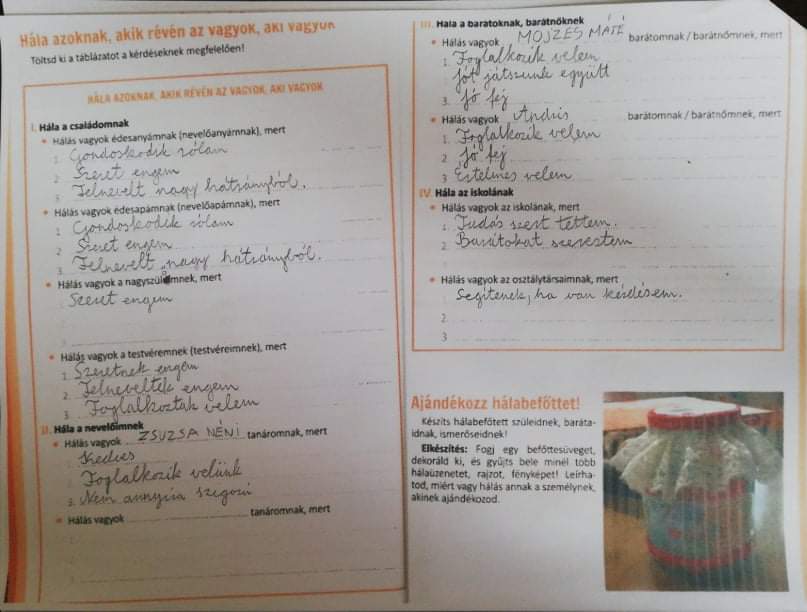 Hála azoknak, akik révén az vagyok, aki vagyok
Töltsd ki a táblázatot a kérdéseknek megfelelően!
HÁLA AZOKNAK, AKIK RÉVÉN AZ VAGYOK, AKI VAGYOK
I. Hála a családomnak
• Hálás vagyok édesanyámnak (nevelőanyámnak), mert
1. Gondoskodik rólam
2. Szeret engem
3. Felnevelt nagy hátrányból.
• Hálás vagyok édesapámnak (nevelőapámnak), mert
1. Gondoskodik rólam
2. Szeret engem
3. Felnevelt nagy hátrányból.
• Hálás vagyok a nagyszüleimnek, mert
1. Szeret engem
2.
3.
• Hálás vagyok a testvéremnek (testvéreimnek), mert
1. Szeretnek engem
2. Felneveltek engem
3. Foglalkoztak velem
II. Hála a nevelőimnek
• Hálás vagyok ZSUZSA NÉNI tanáromnak, mert
1. Kedves
Foglalkozik velünk
3. Nem annyira szigorú
• Hálás vagyok tanáromnak, mert
1.
2.
3.
III. Hála a barátoknak, barátnőknek
• Hálás vagyok MOJZES MÁTÉ barátomnak / barátnőmnek, mert
1. Foglalkozik velem
Jót játszunk együtt
3. Jó fej
• Hálás vagyok Andris barátomnak / barátnőmnek, mert
1. Foglalkozik velem
2. Jó fej
3. Értelmes velem
IV. Hála az iskolának
• Hálás vagyok az iskolának, mert
1. Tudás szert tettem.
2. Barátokat szereztem
• Hálás vagyok az osztálytársaimnak, mert
1. Segítenek, ha van kérdésem.
2.
3
Ajándékozz hálabefőttet!
Készíts hálabefőttet szüleidnek, baráta-
idnak, ismerőseidnek!
Elkészítés: Fogj egy befőttesüveget,
dekoráld ki, és gyűjts bele minél több
hálaüzenetet, rajzot, fényképet! Leírha-
tod, miért vagy hálás annak a személynek,
akinek ajándékozod.